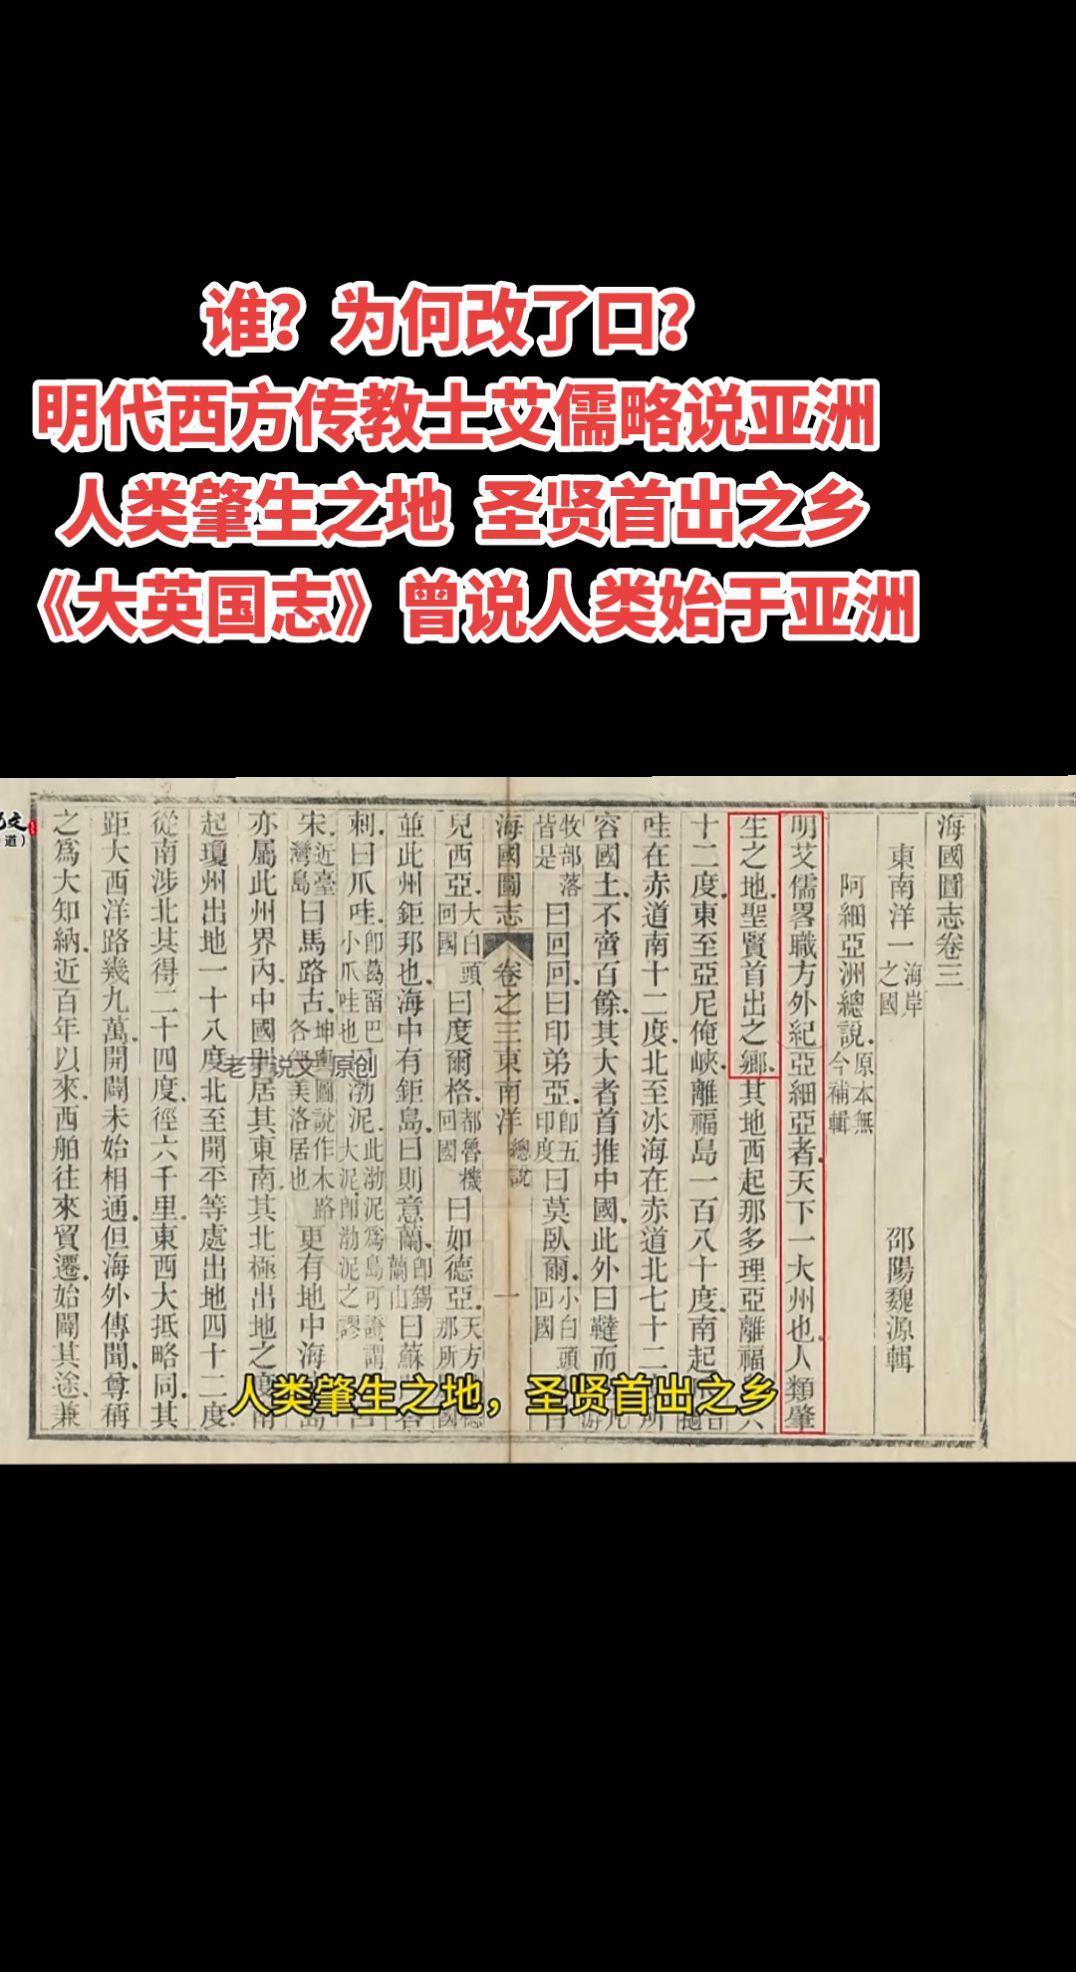 谁？为何改了口？
明代西方传教士艾儒略说亚洲
人类肇生之地 圣贤首出之乡
《大英国志》曾说人类始于亚洲
海國圖志卷三
東南洋一海岸之國
邵陽魏源輯
阿細亞洲總說原本無今補輯
明艾儒畧職方外紀亞細亞者天下一大州也人類肇
生之地聖賢首出之鄉其地西起那多理亞離福
十二度東至亞尼俺峽離福島一百八十度南起
哇在赤道南十二度北至冰海在赤道北七十二
容國土不啻百餘其大者首推中國此外曰韃而
牧部落皆是曰回回曰印弟亞即五印度曰莫臥爾小白頭回國
海國圖志 卷之三東南洋 總說 一
兒西亞大白頭回國曰度爾格都魯機回國曰如德亞天方
並此州鉅邦也海中有鉅島曰則意蘭即錫蘭山曰蘇
剌曰爪哇即葛留巴小爪哇也 渤泥此渤泥爲島可證謂大泥即渤泥之謬
宋近臺灣島曰馬路古 美洛居也更有地中海
亦屬此州界內中國 居其東南其北極出地之度南
起瓊州出地一十八度北至開平等處出地四十二度
從南涉北其得二十四度徑六千里東西大抵略同其
距大西洋路幾九萬開闢未始相通但海外傳聞尊稱
之爲大知納近百年以來西舶往來貿遷始闢其途兼
老于说文 原创
人类肇生之地，圣贤首出之乡